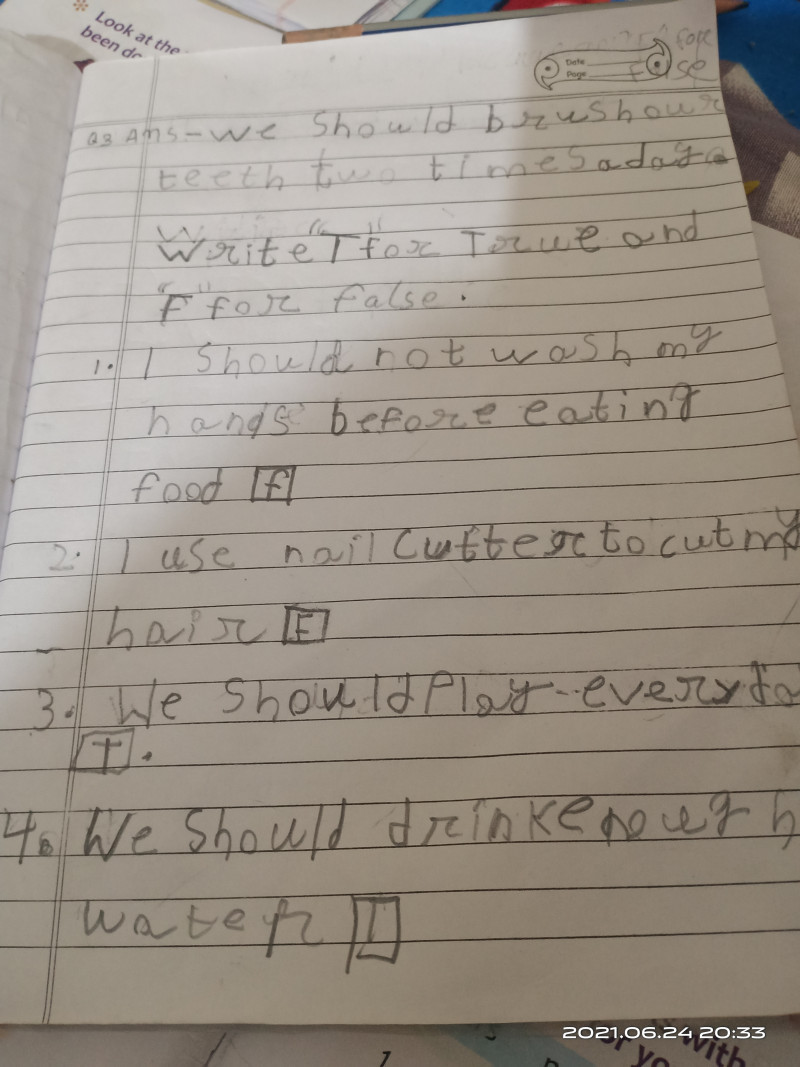 Look at the
been do
for
false
Date
Page
Q3 Ans - We should brush our
teeth two times a day
Write "T" for True and
"F" for false.
1. I should not wash my
hands before eating
food F
2. I use nail cutter to cut my
hair F
3. We should play - every da
T.
4. We should drink enough
water T
2021.06.24 20:33
with
or yo
1